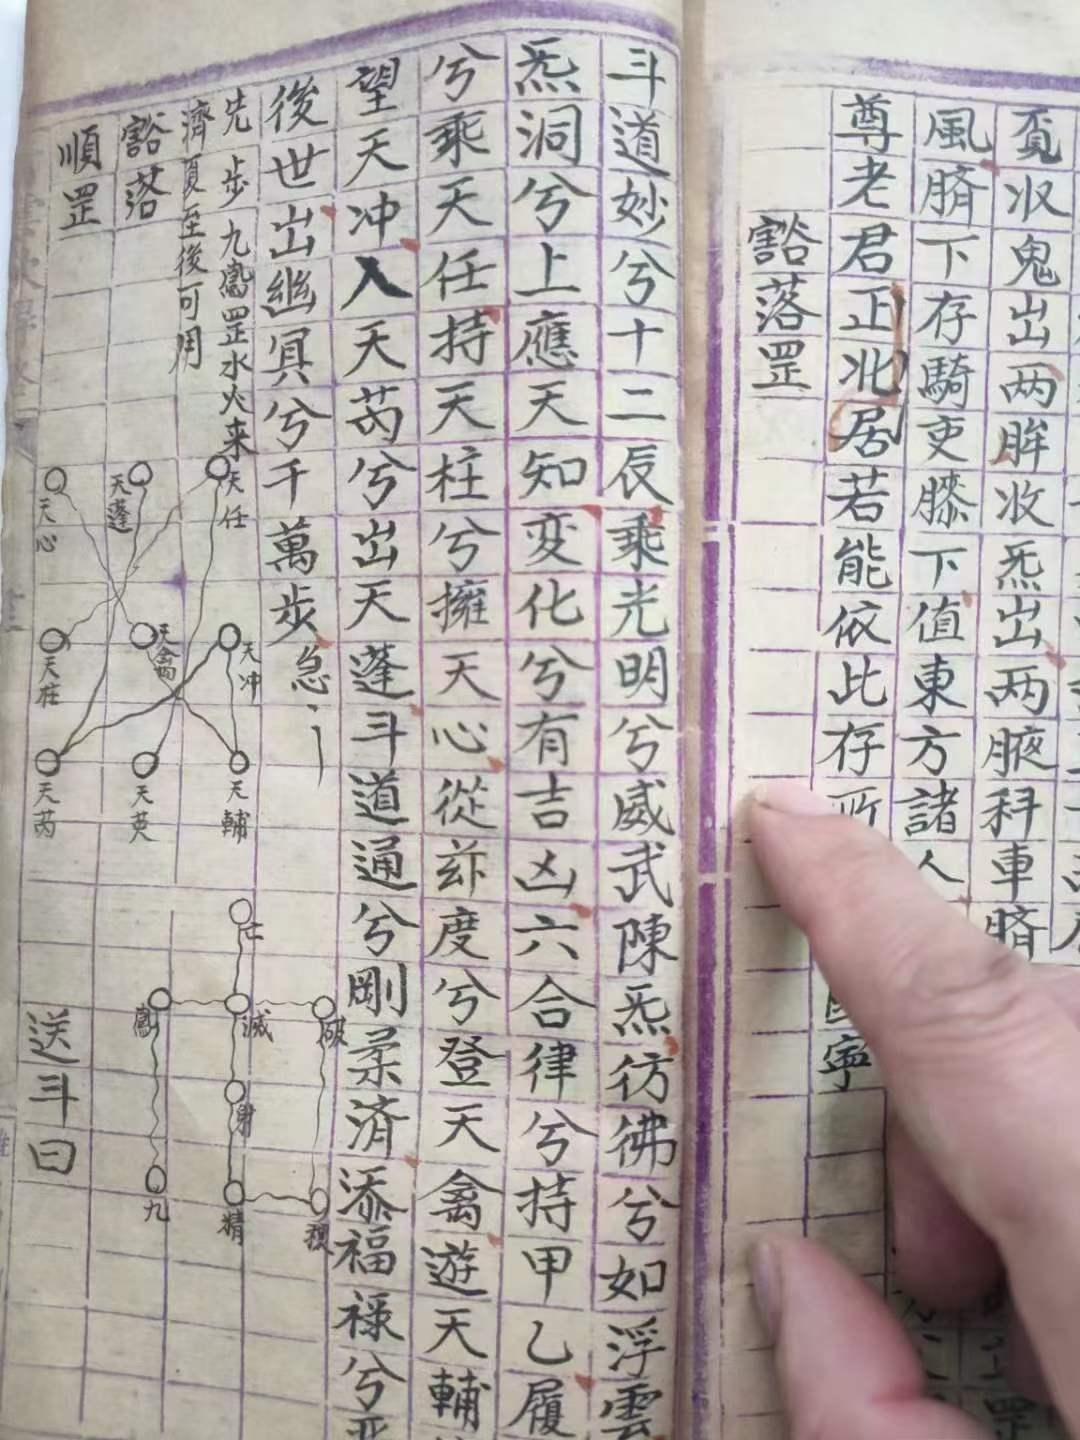 覔収鬼出两眸收炁出两腋科車臍
風臍下存騎吏膝下值東方諸人
尊老君正北居若能依此存所
寧
豁落罡
斗道妙兮十二辰乘光明兮威武陳炁彷彿兮如浮雲
炁洞兮上應天知変化兮有吉凶六合律兮持甲乙履
兮乘天任持天柱兮擁天心從玆度兮登天禽遊天輔
望天冲入天芮兮出天蓬斗道通兮剛柔済添福禄兮
後世出幽冥兮千萬步急
先步九鳳罡水火来
濟夏至後可用
豁落
順罡
天任
天蓬
天心
天冲
天禽
天柱
天輔
天英
天芮
亡
破
滅
鳳
身
穢
精
九
送斗曰